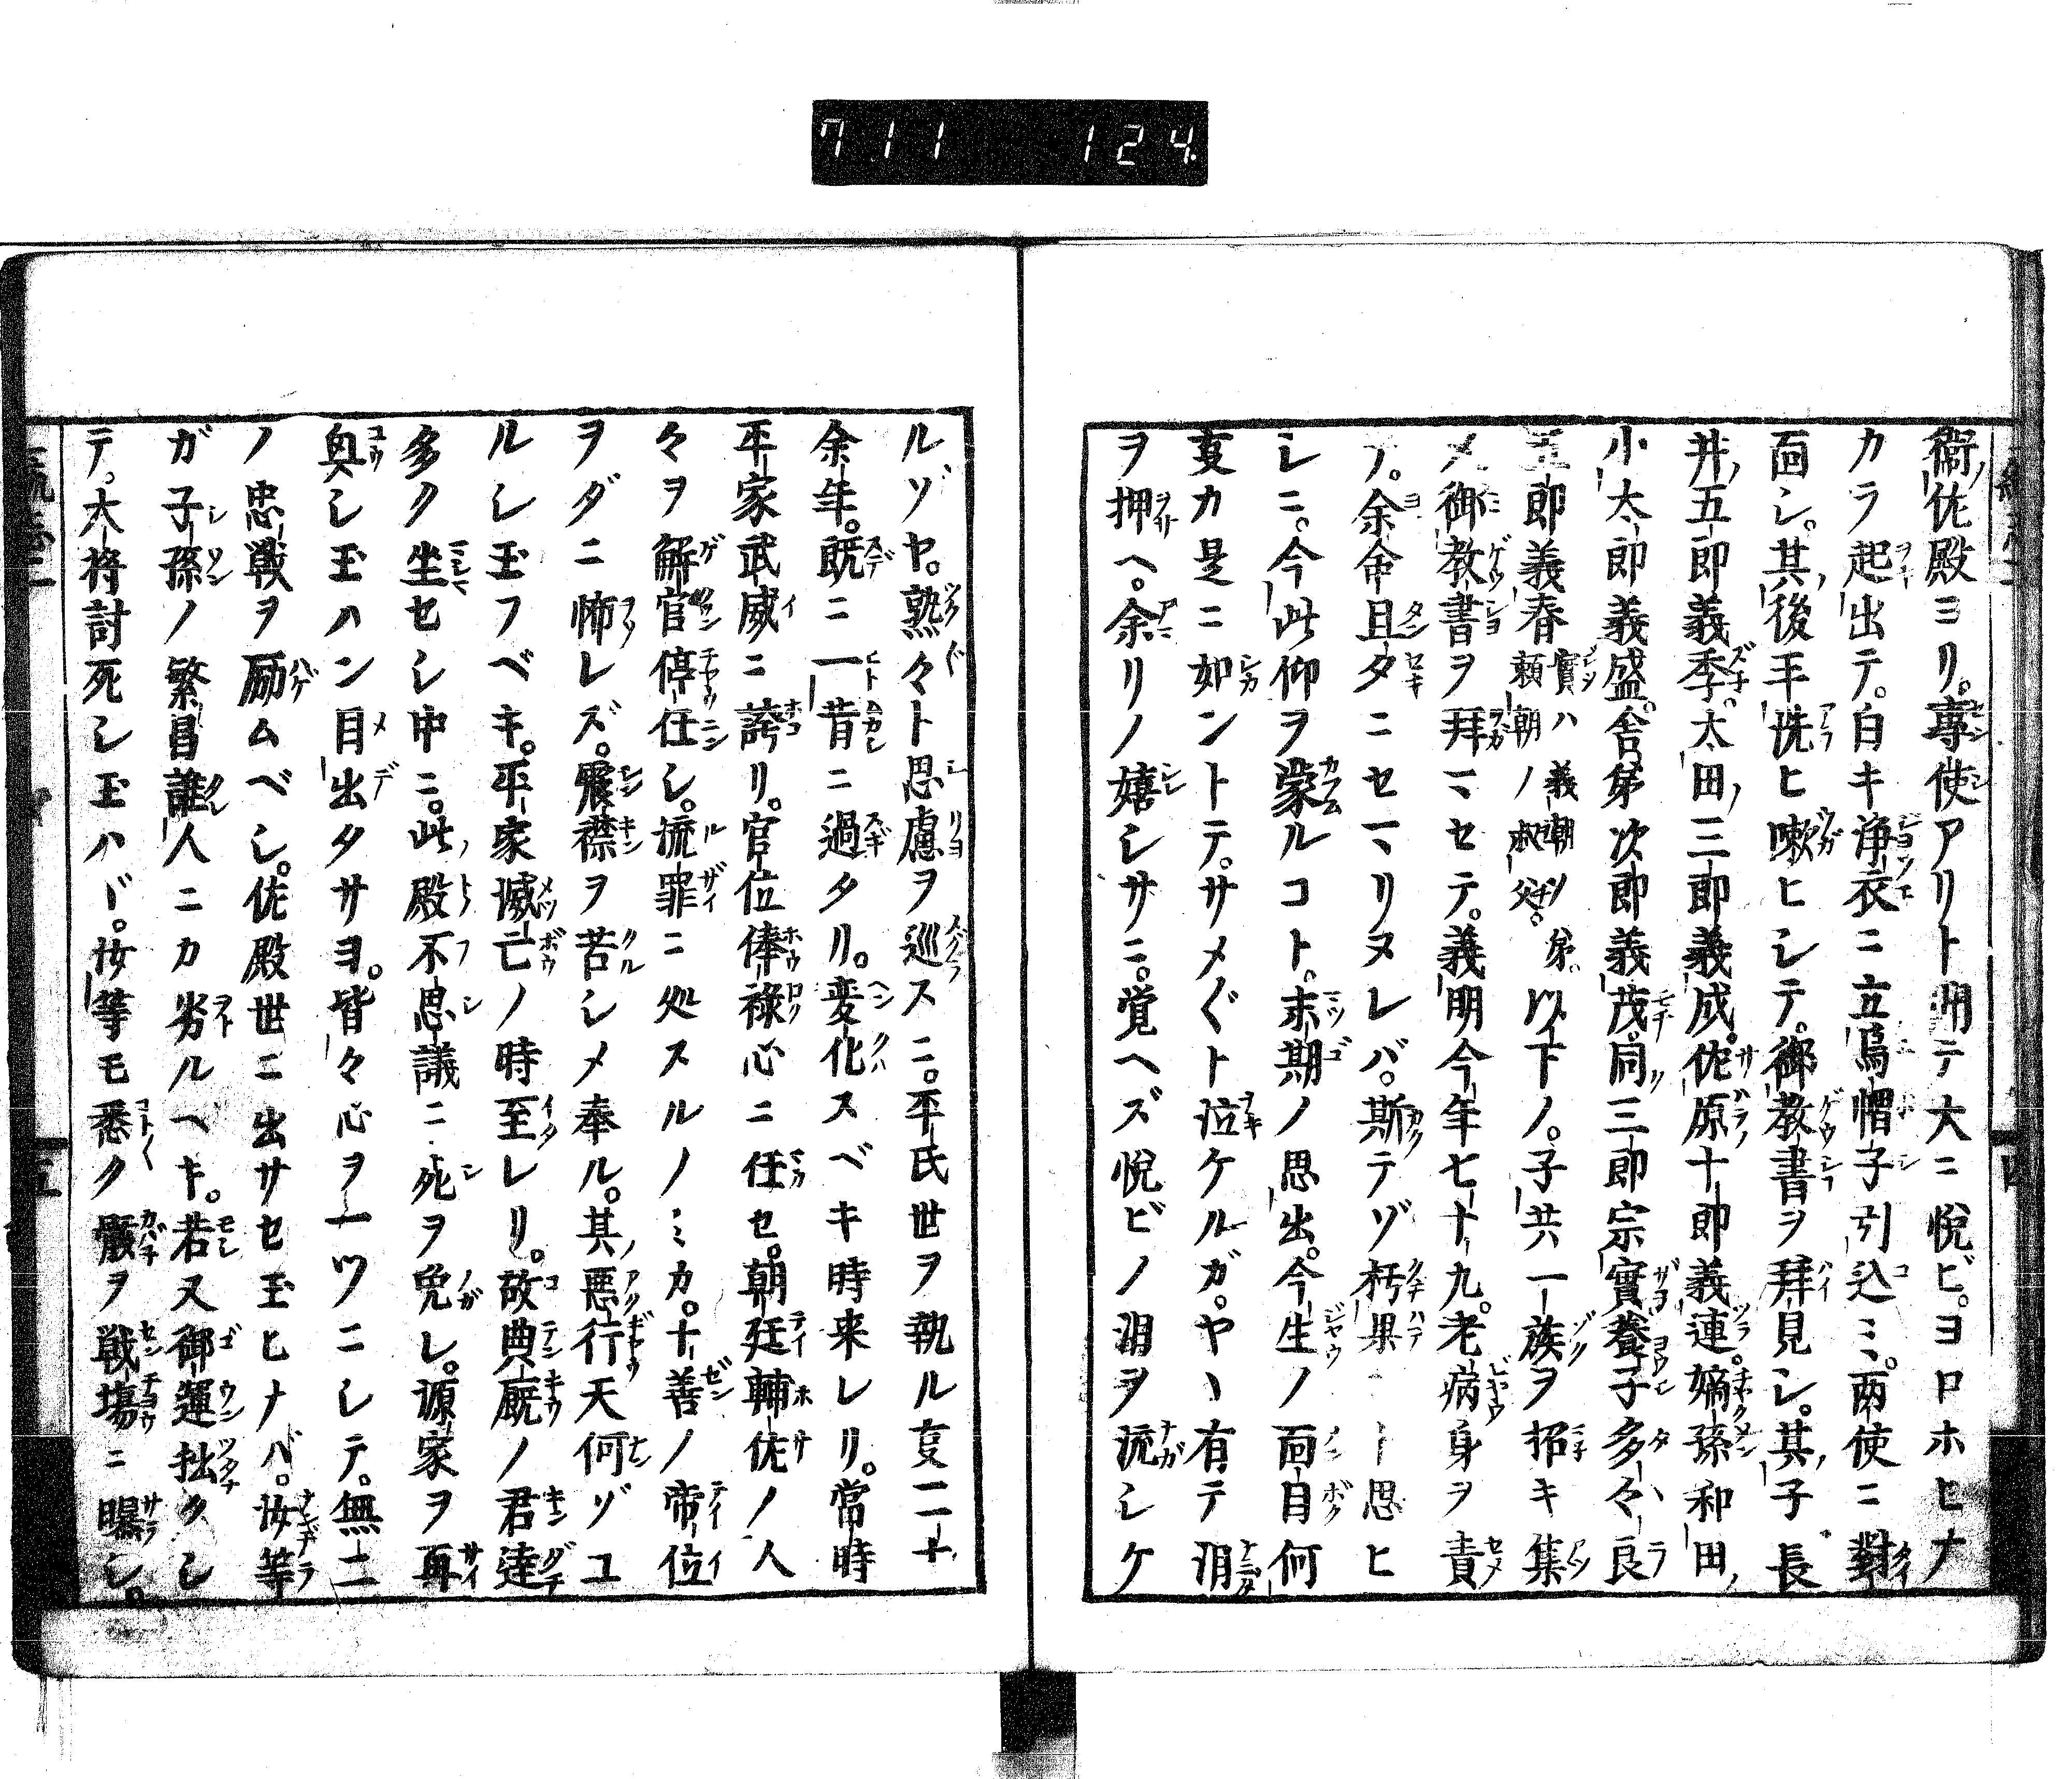 711 124
衛佐殿ヨリ。專使アリト聞テ大ニ悦ビ。ヨロホヒナ
カラ起出テ。白キ浄衣ニ立烏帽子引込ミ。兩使ニ對
面シ。其後手洗ヒ嗽ヒシテ。御教書ヲ拜見シ。其子長
井五郎義季。太田三郎義成。佐原十郎義連。嫡孫和田
小太郎義盛。舍弟次郎義茂。同三郎宗實養子多々良
五郎義春實ハ義朝ノ弟。頼朝ノ叔父。以下ノ。子共一族ヲ招キ集
メ御教書ヲ拜マセテ。義明今年七十九。老病身ヲ責
テ。余命且タニセマリヌレバ。斯テゾ朽果ント思ヒ
シニ。今此仰ヲ蒙ルコト。末期ノ思出。今生ノ面目何
事カ是ニ如ントテ。サメ〴〵ト泣ケルガ。ヤヽ有テ泪
ヲ押ヘ。余リノ嬉シサニ。覚ヘズ悦ビノ泪ヲ流シケ
ルゾヤ。熟々ト思慮ヲ巡スニ。平氏世ヲ執ル事二十
余年。既ニ一昔ニ過タリ。変化スベキ時来レリ。當時
平家武威ニ誇リ。官位俸禄心ニ任セ。朝廷輔佐ノ人
々ヲ解官停任シ。流罪ニ処スルノミカ。十善ノ帝位
ヲダニ怖レズ。震襟ヲ苦シメ奉ル。其悪行天何ゾユ
ルシ玉フベキ。平家滅亡ノ時至レリ。故典厩ノ君達
多ク坐セシ中ニ。此殿不思議ニ死ヲ免レ。源家ヲ再
興シ玉ハン目出タサヨ。皆々心ヲ一ツニシテ。無二
ノ忠戦ヲ励ムベシ。佐殿世ニ出サセ玉ヒナバ。汝等
ガ子孫ノ繁昌誰人ニカ劣ルベキ。若又御運拙クシ
テ。大将討死シ玉ハヾ。汝等モ悉ク骸ヲ戦場ニ曝シ。